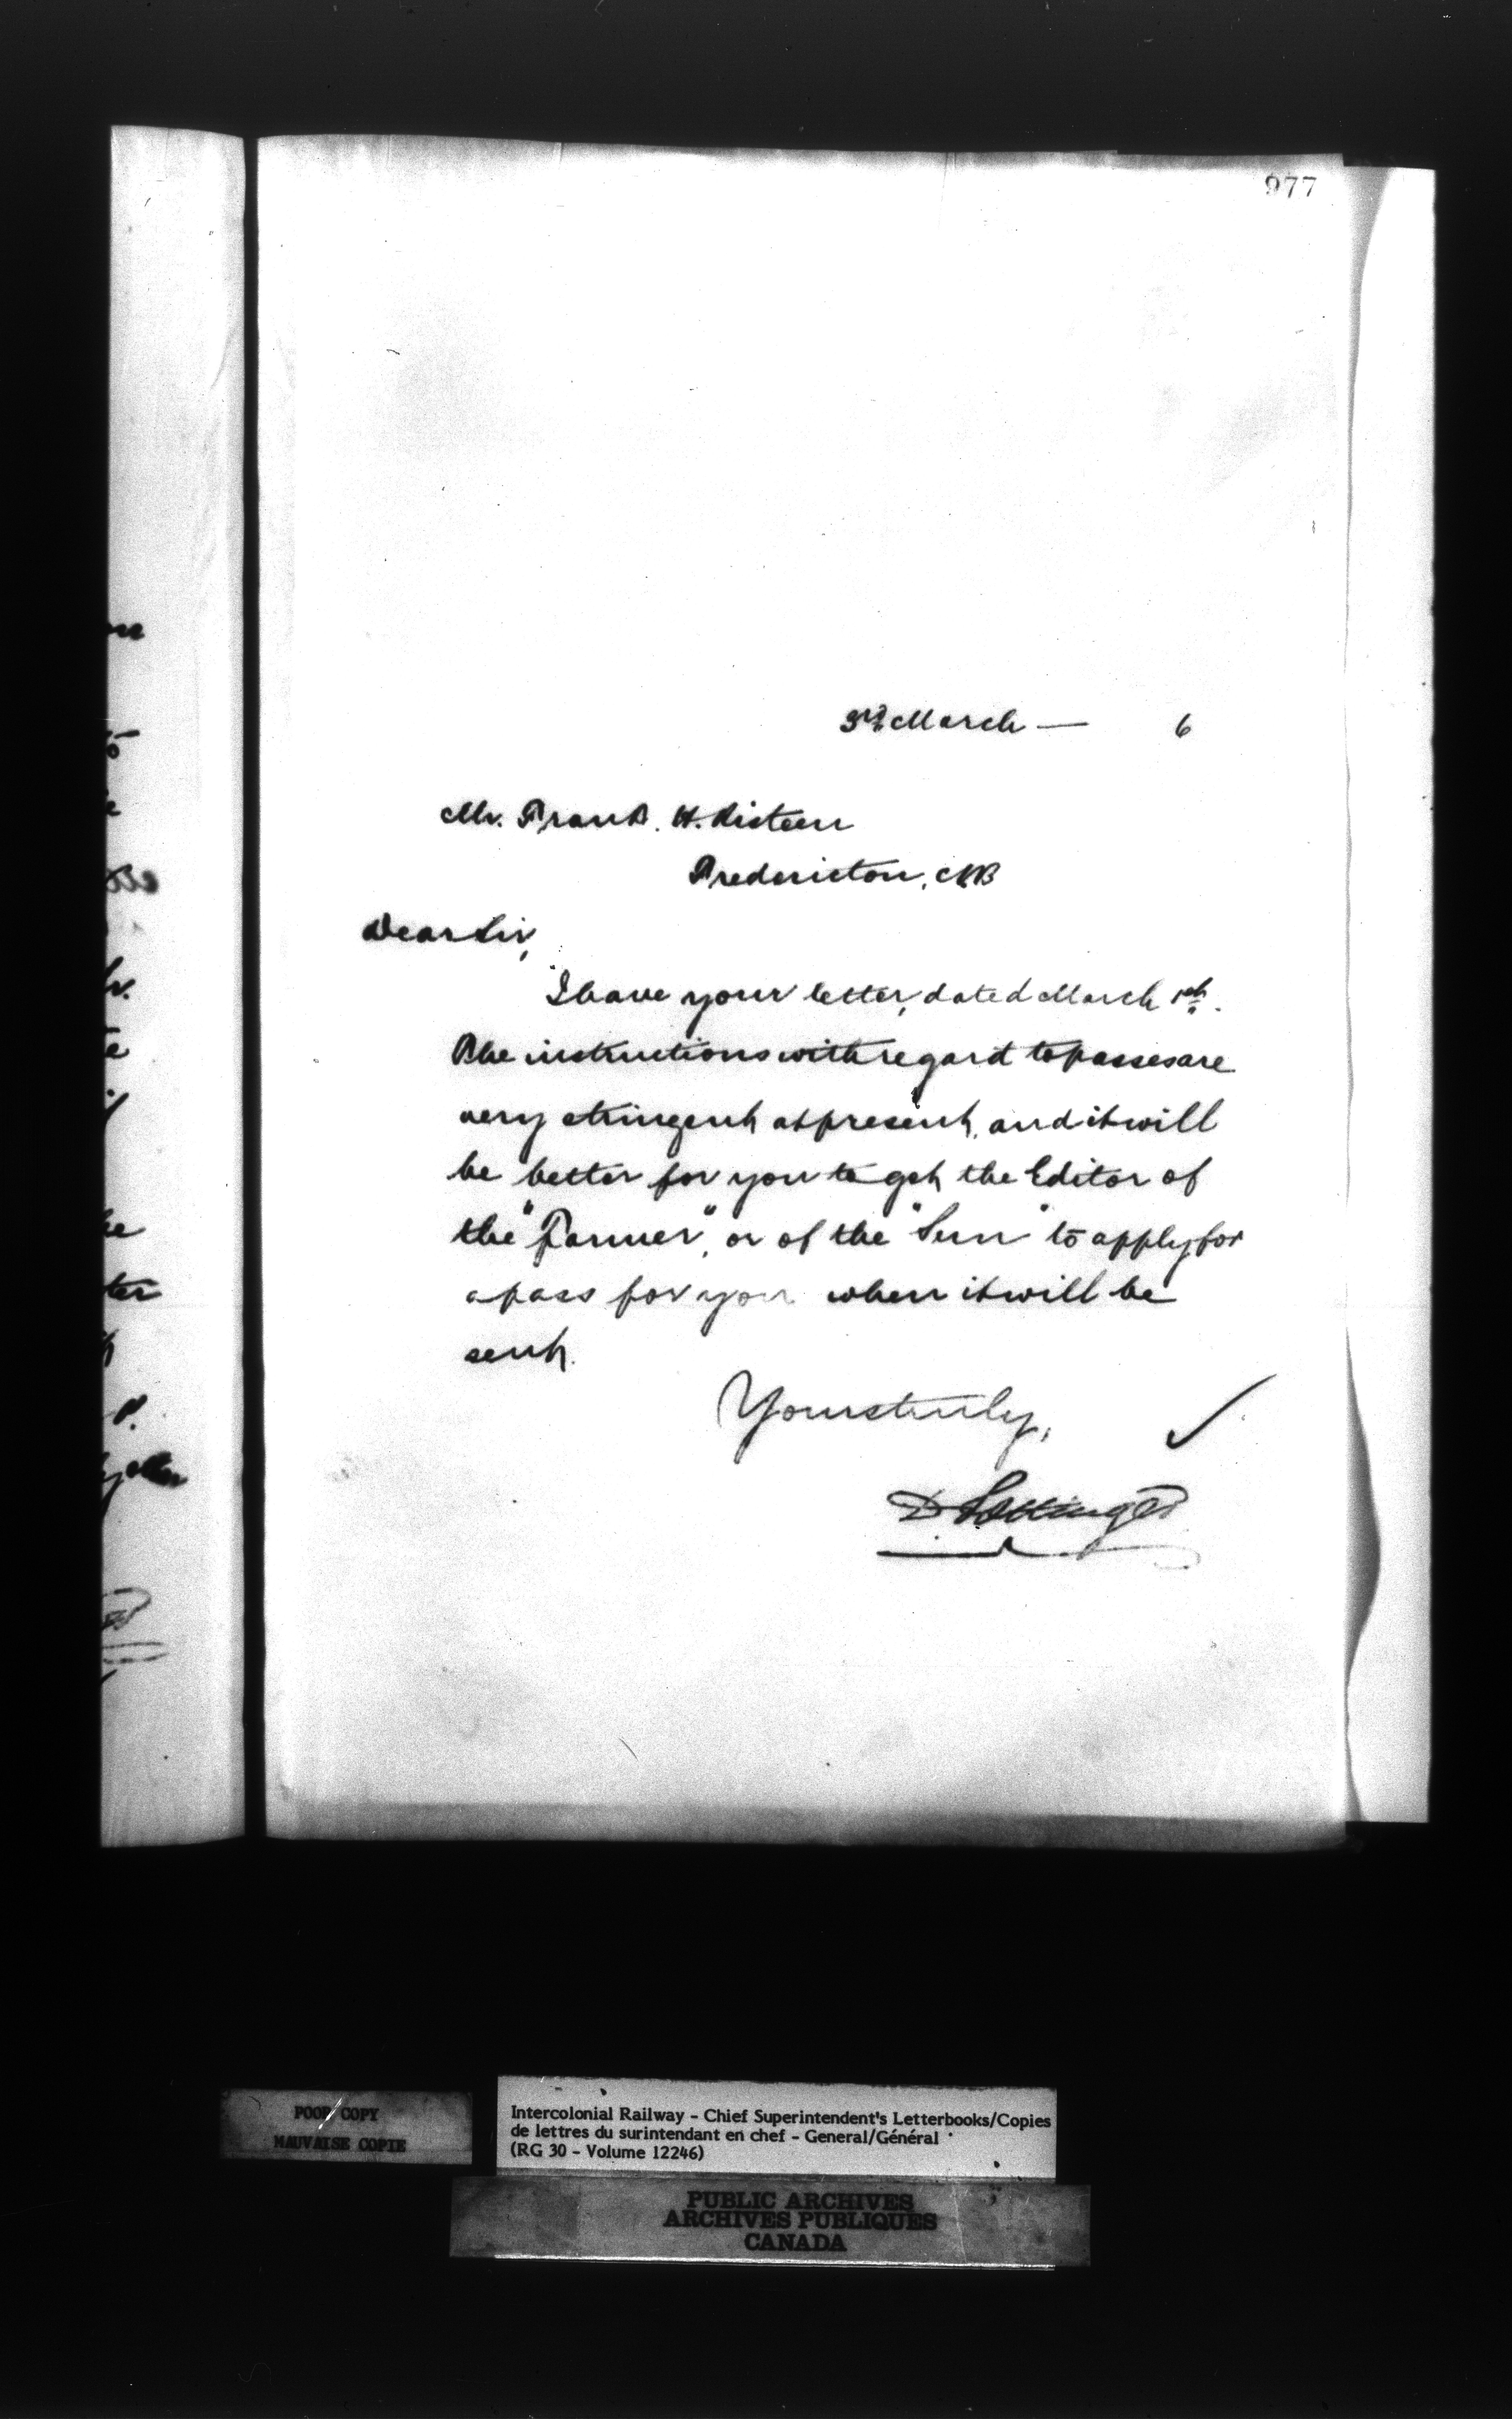 977
3rd March — 6
Mr. Frank. H. Risteen
Fredericton, NB
Dear Sir,
I have your letter, dated March 1st.
The instructions with regard to passes are
very stringent at present, and it will
be better for you to get the Editor of
the "Farmer", or of the "Sun" to apply for
a pass for you when it will be
sent.
Yours truly,
D Pottinger
POOR COPY
MAUVAISE COPIE
Intercolonial Railway - Chief Superintendent's Letterbooks/Copies
de lettres du surintendant en chef - General/Général
(RG 30 - Volume 12246)
PUBLIC ARCHIVES
ARCHIVES PUBLIQUES
CANADA